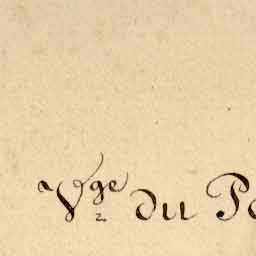 Vge du Po